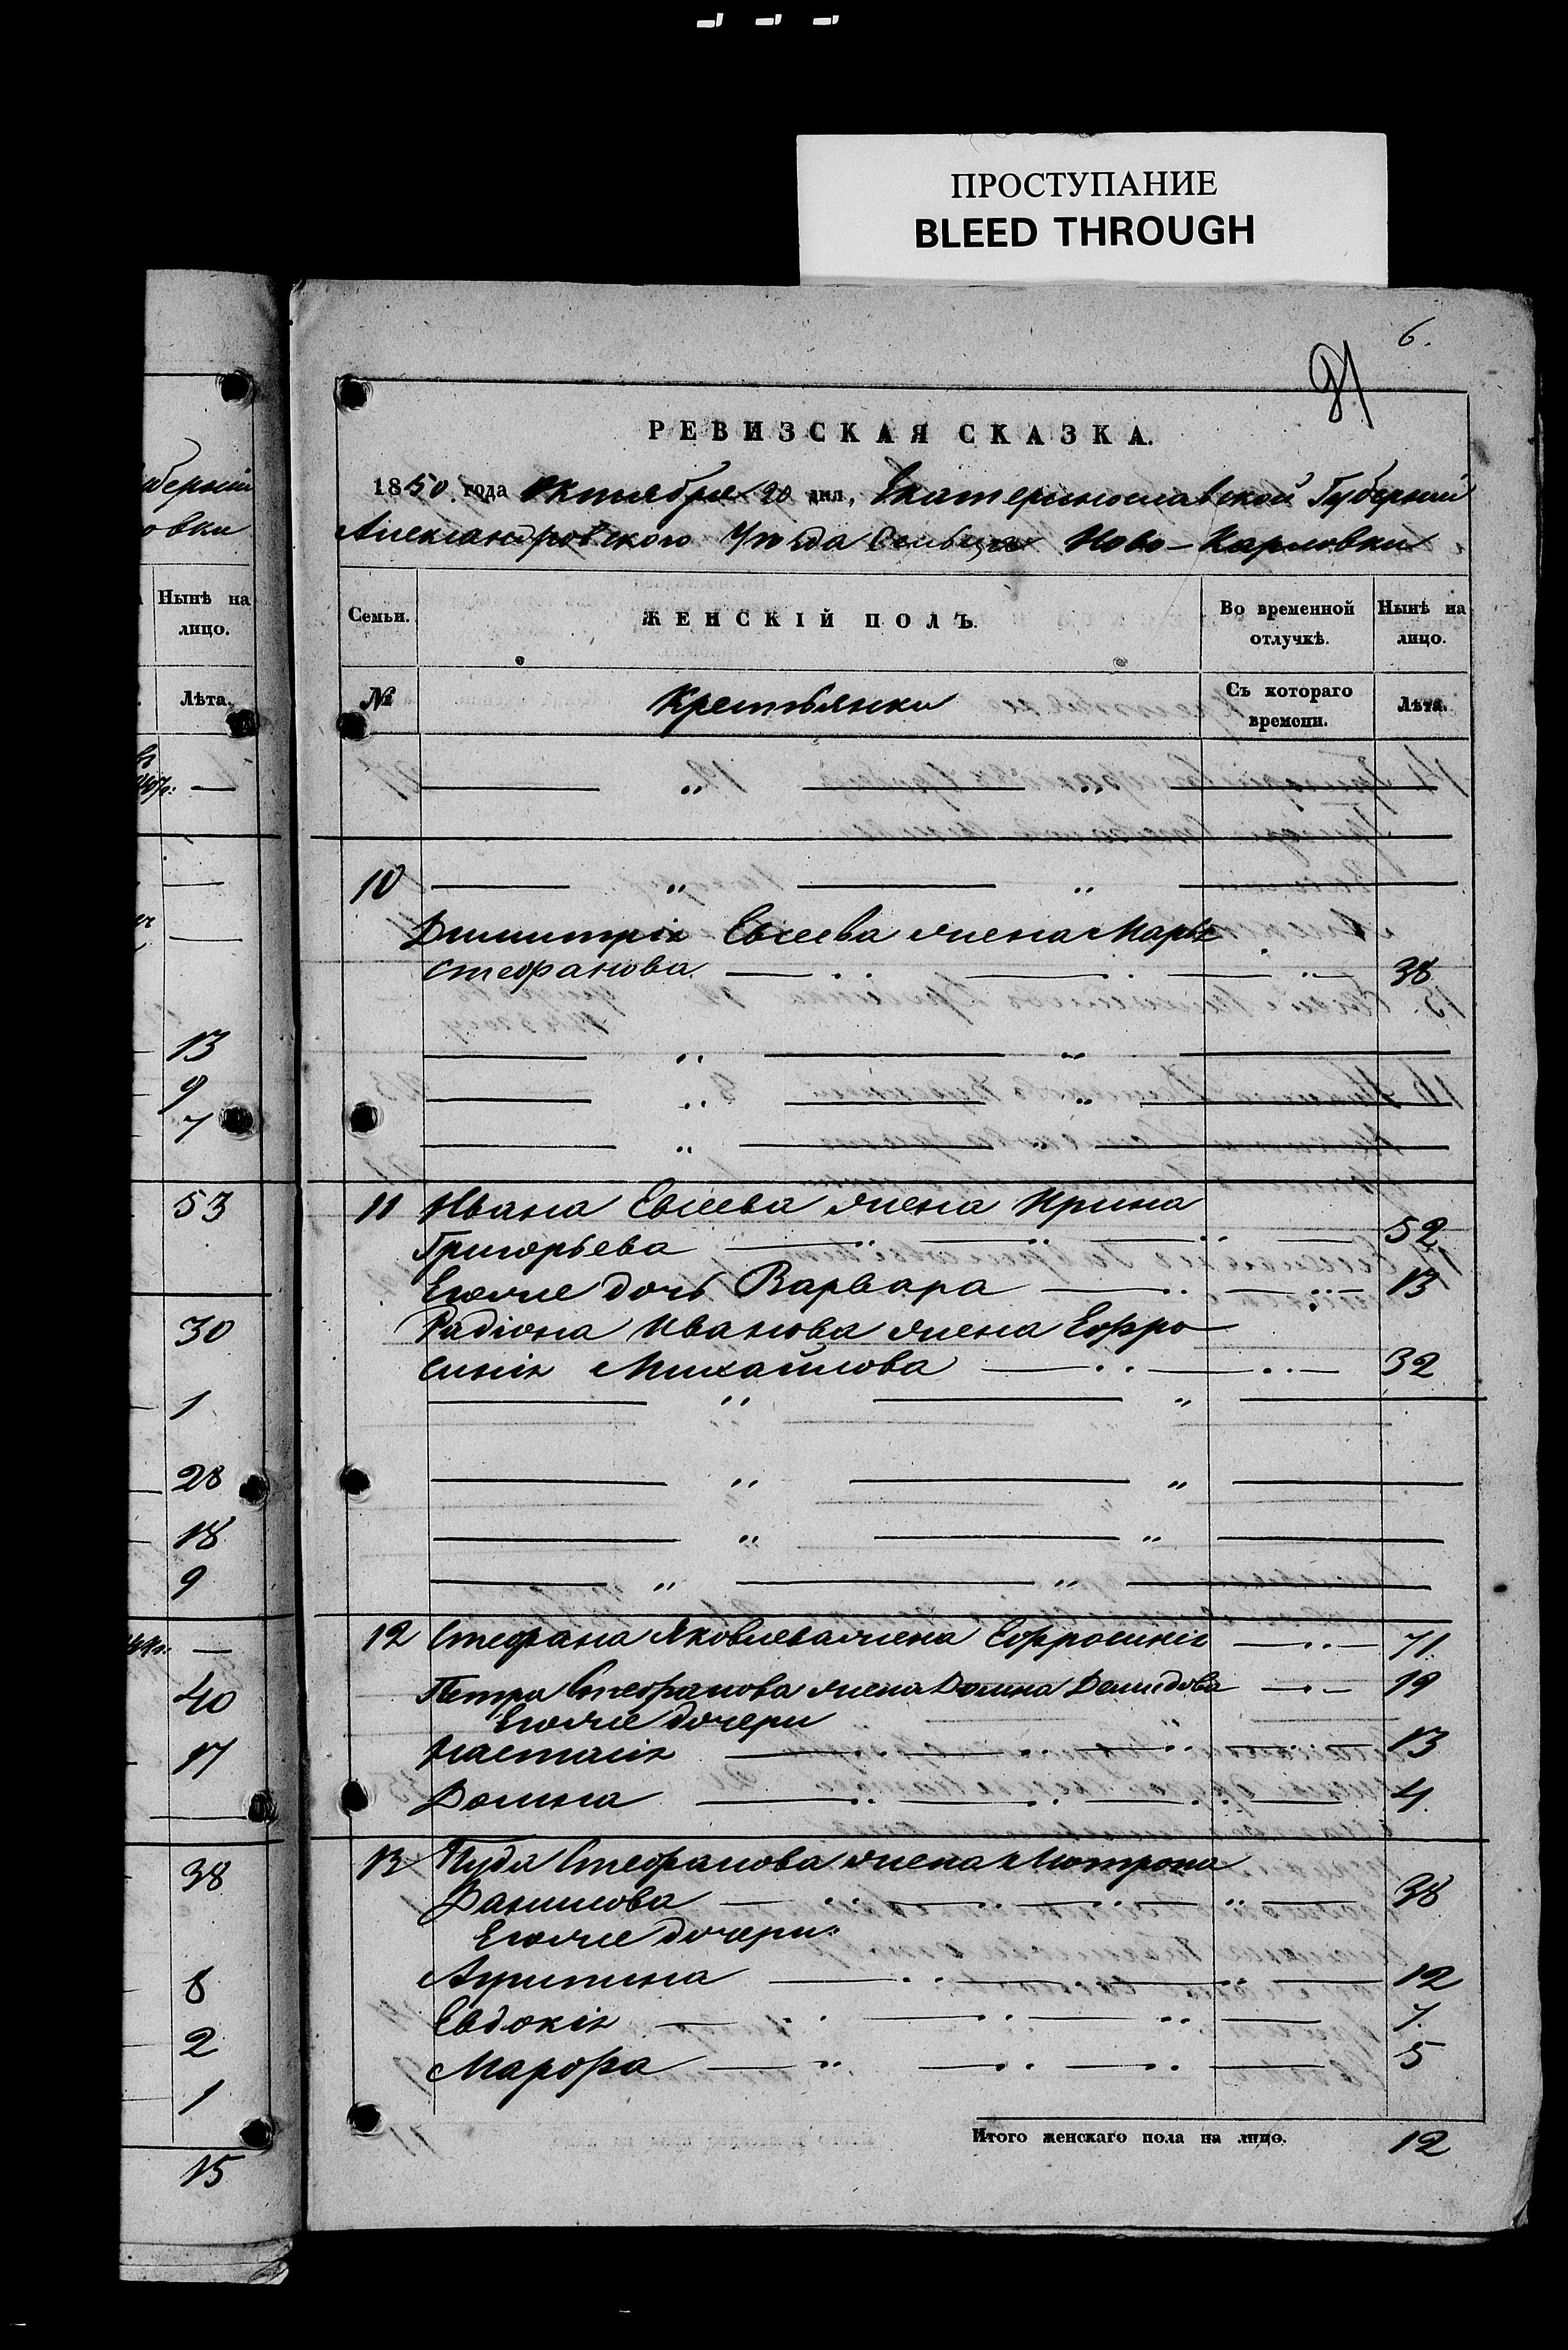 ПРОСТУПАНИЕ
BLEED THROUGH
6.
81
РЕВИЗСКАЯ СКАЗКА.
1850 года Октября 20 дня, Екатеринославской Губерніи
Александровскаго Уѣзда Сельца Ново-Карловки
Семьи. ЖЕНСКІЙ ПОЛЪ. Во временной отлучкѣ. Нынѣ на лицо.
№ Крестьянки Съ котораго времени. Лѣта.
10
Димитрія Евсеева жена Марья
Стефанова 38
11 Ивана Евсеева жена Ирина
Григорьева 52
Егоже дочь Варвара 13
Радіона Иванова жена Ефро
синія Михайлова 32
12 Стефана Яковлева жена Ефросинія 71
Петра Стефанова жена Домна Демидова 19
Егоже дочери
Настасія 13
Домна 4.
13 Нуда Стефанова жена Мотрона
Данилова 38
Егоже дочери:
Евдокія 7.
Марфа 5
Итого женскаго пола на лицо. 12
аберніи
овки
Нынѣ на лицо.
Лѣта.
13
9
7
53
30
1
28
18
9
40
17
38
8
2
1
15